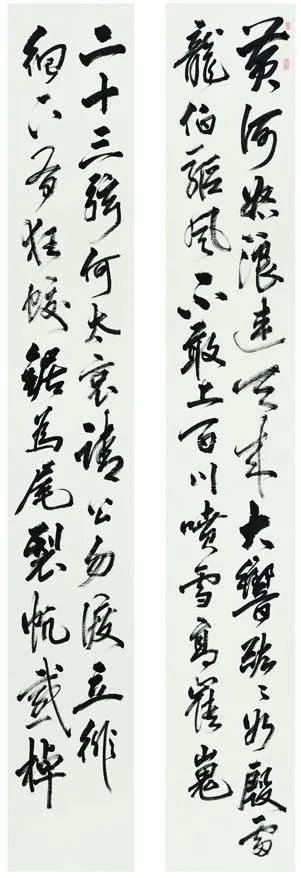 黃河怒浪連天來大響谹々如殷雷
龍伯驅風不敢上百川噴雪高崔嵬
二十三弦何太哀請公勿渡立徘
徊下有狂蛟鋸為尾裂帆截棹